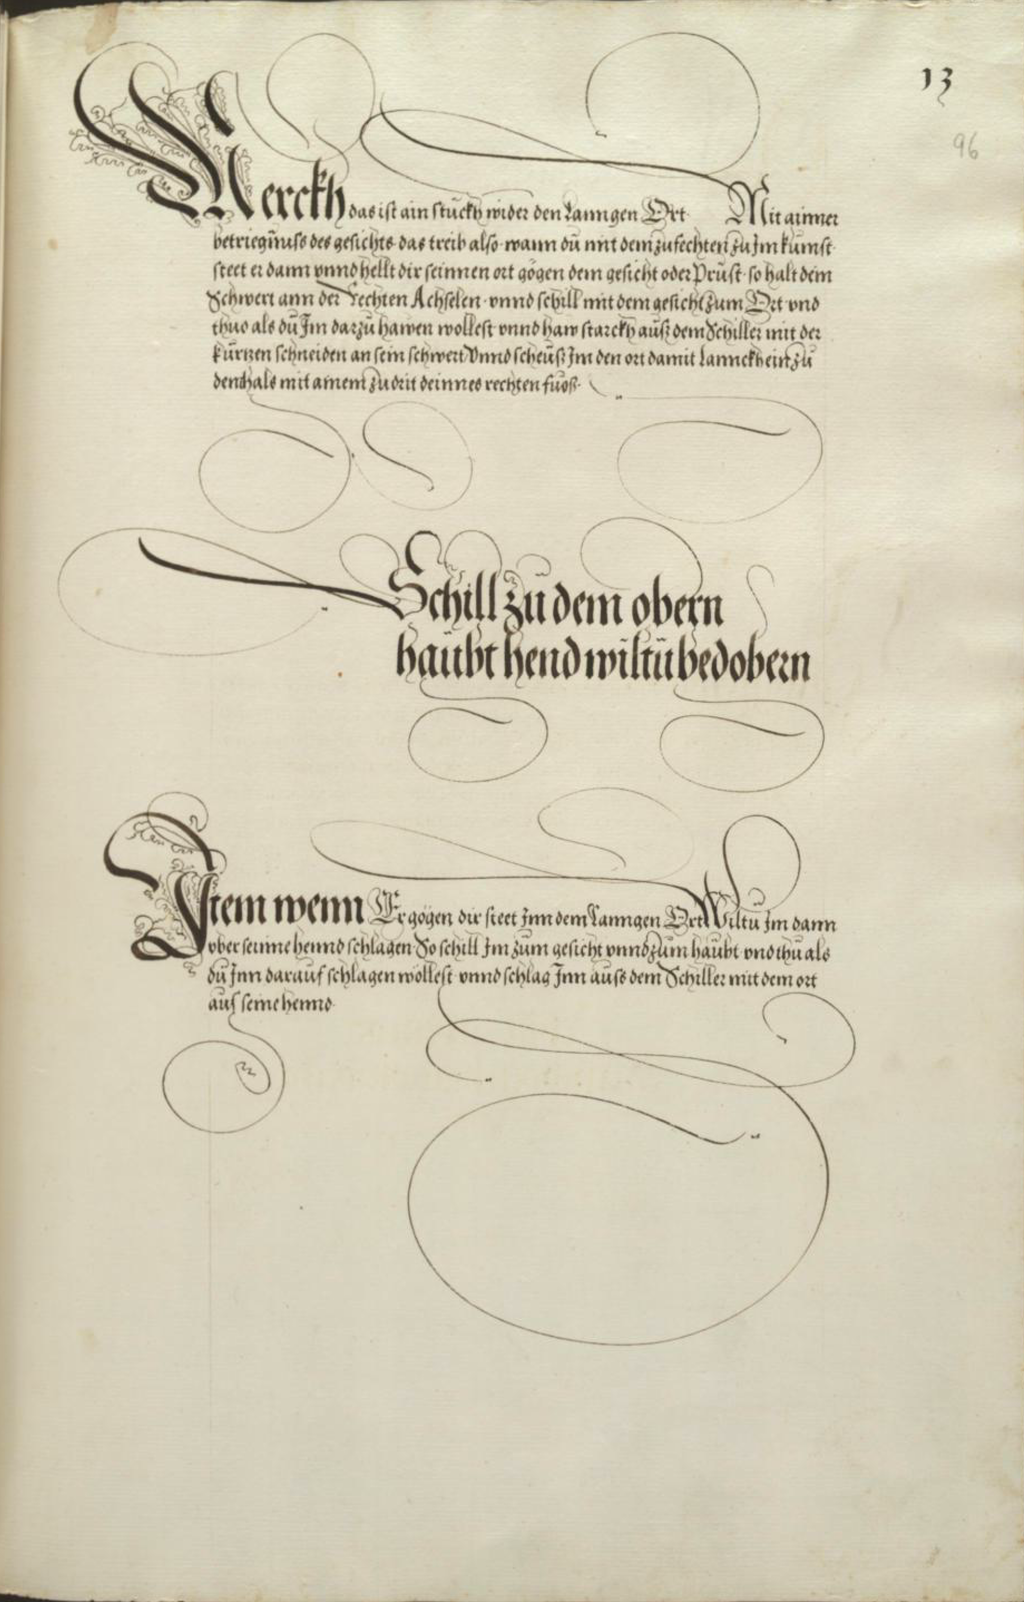 13
96
Merckh das ist ain stuckh wider den Lanngen Ort Mit ainner
betriegnuss des gesichts das treib also wann du mit dem zufechten zu Im kumst
steet er dann vnnd hellt dir seinnen ort gögen dem gesicht oder Prust so halt dein
Schwert ann der Rechten Achselen vnnd schill mit dem gesicht zum Ort vnd
thuo als du Im darzu hawen wollest vnnd haw starckh auß dem Schiller mit der
kurtzen schneiden an sein schwert Vnnd scheuß Im den ort damit Lannckh ein zu
dem hals mit ainem zudrit deinnes rechten fuoß
Schill zu dem obern
haubt hend wiltu bedobern
Item wenn Er gögen dir steet Inn dem Lanngen Ort Wiltu Im dann
vber seinne hennd schlagen So schill Im zum gesicht vnnd zum haubt vnd thu als
du Inn darauf schlagen wöllest vnnd schlag Inn auss dem Schiller mit dem ort
auf seine hennd